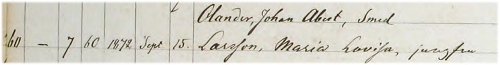 Olander, Johan Albert, Smed
60 – 7 60 1872 Sept 15. Larsson, Maria Lovisa, jungfru